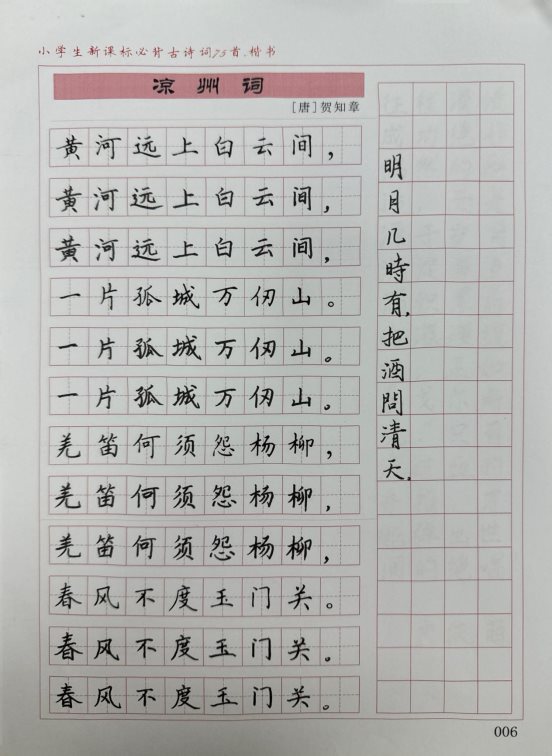 小学生新课标必背古诗词75首.楷书
凉州词
[唐]贺知章
黄河远上白云间，
黄河远上白云间，
黄河远上白云间，
一片孤城万仞山。
一片孤城万仞山。
一片孤城万仞山。
羌笛何须怨杨柳，
羌笛何须怨杨柳，
羌笛何须怨杨柳，
春风不度玉门关。
春风不度玉门关。
春风不度玉门关。
明月几時有，把酒問清天。
006